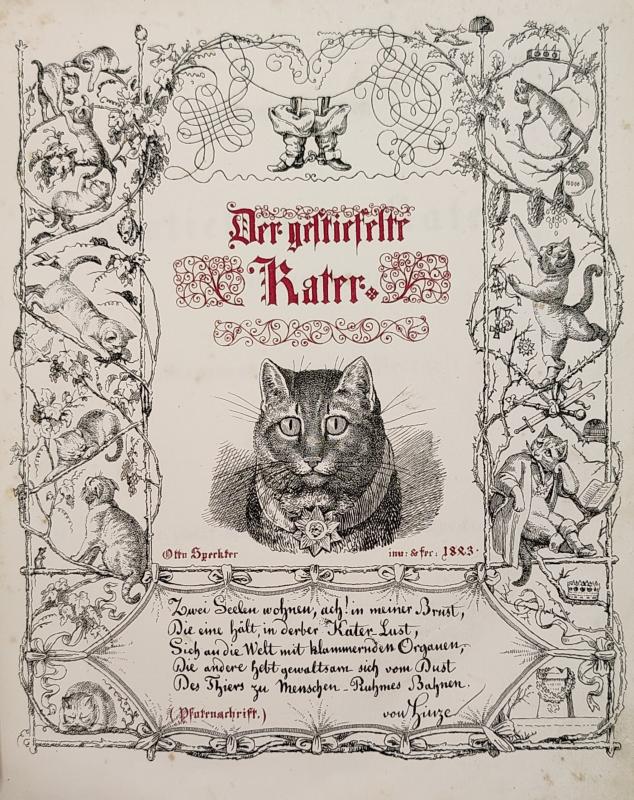 Der gestiefelte
Kater.
Otto Speckter
inv: & fec: 1823.
Zwei Seelen wohnen, ach! in meiner Brust,
Die eine hält, in derber Kater-Lust,
Sich an die Welt mit klammernden Organen,
Die andere hebt gewaltsam sich vom Dust
Des Thiers zu Menschen-Ruhmes Bahnen.
(Pfotenschrift.)
von Hinze